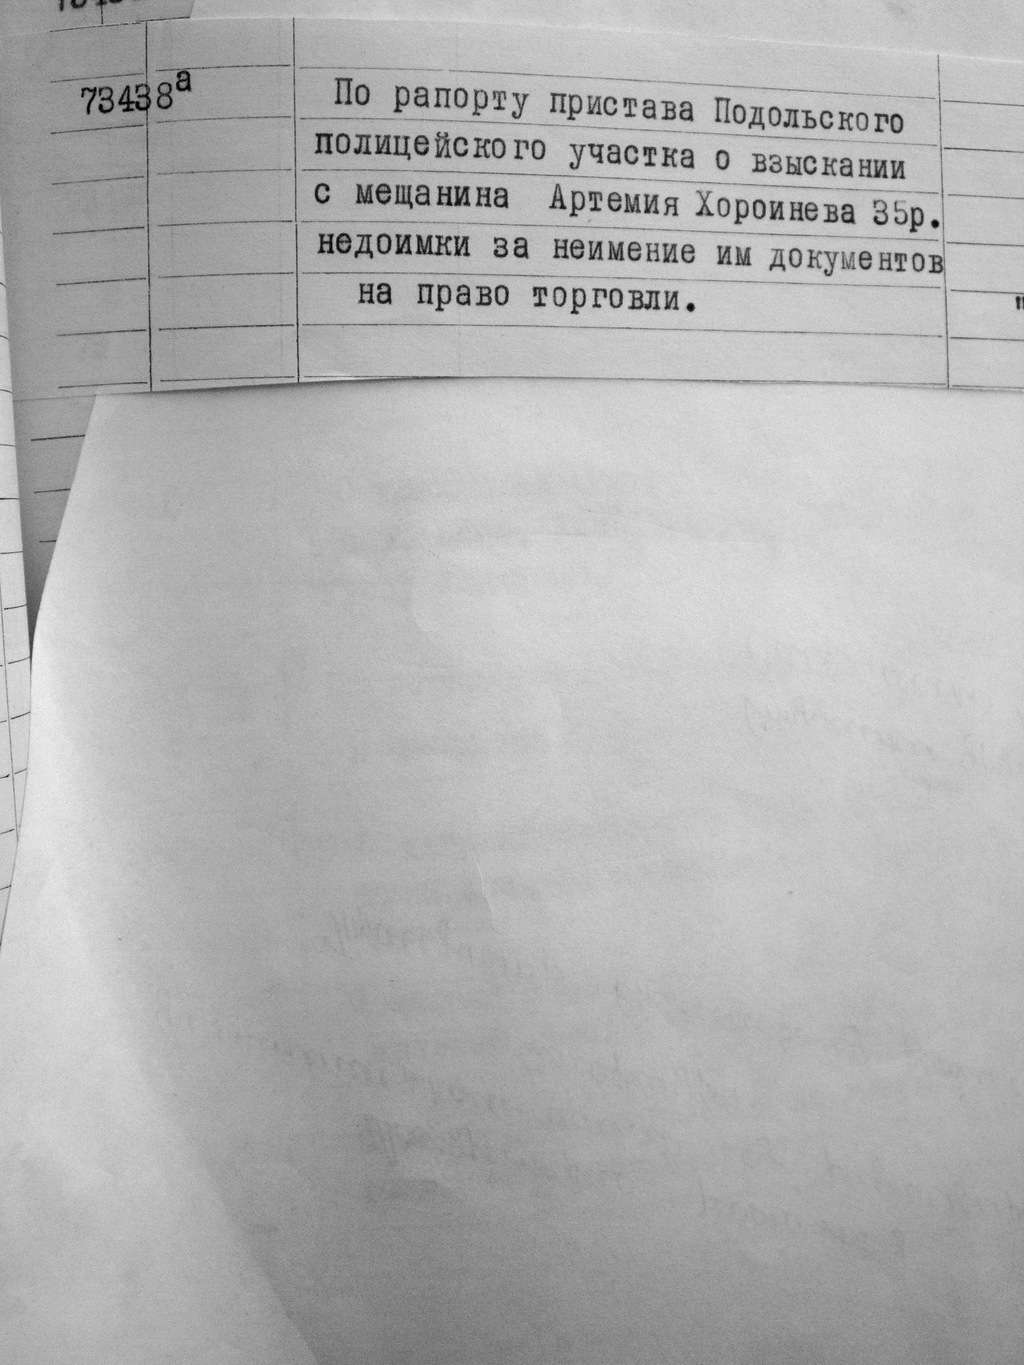 73438а
По рапорту пристава Подольского
полицейского участка о взыскании
с мещанина Артемия Хороинева 35р.
недоимки за неимение им документов
на право торговли.
"